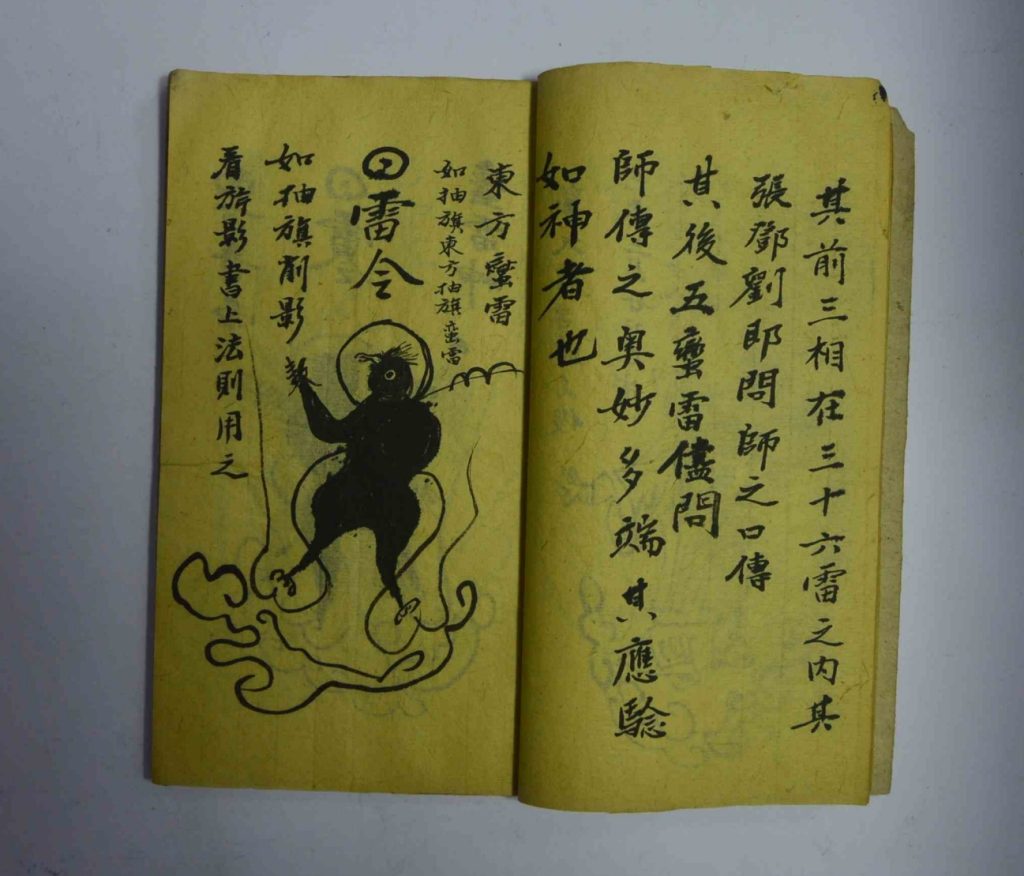 其前三相在三十六雷之内其
張鄧劉即問師之口傳
其後五蠻雷儘問
師傳之奥妙多端其應驗
如神者也
東方蠻雷
如抽旗東方抽旗蛮雷
雷令
如抽旗削影
看旂影書上法則用之